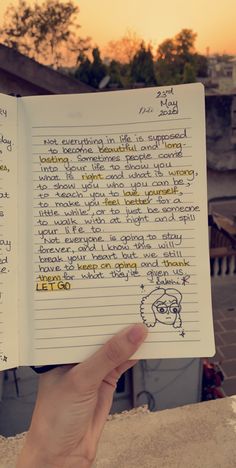 23rd
May
Date 2020
Not everything in life is supposed
to become beautiful and long-
lasting. Sometimes people come
into your life to show you
what is right and what is wrong,
to show you who you can be,
to teach you to love yourself,
to make you feel better for a
little while, or to just be someone
to walk with at night and spill
your life to.
Not everyone is going to stay
forever, and I know this will
break your heart but we still
have to keep on going and thank
them for what they've given us.
LET GO